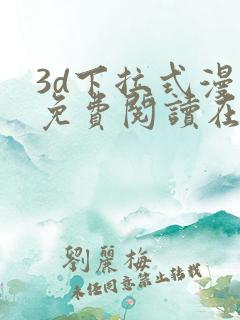 3d下拉式漫
免費閱讀在
劉麗梅
未经同意禁止转载